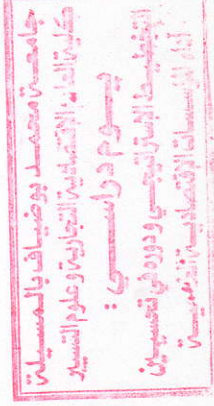 جامعة محمد بوضياف بالمسيلة
كلية العلوم الاقتصادية التجارية وعلوم التسيير
يوم دراسي:
التخطيط الاستراتيجي ودوره في تحسين
أداء المؤسسات الاقتصادية